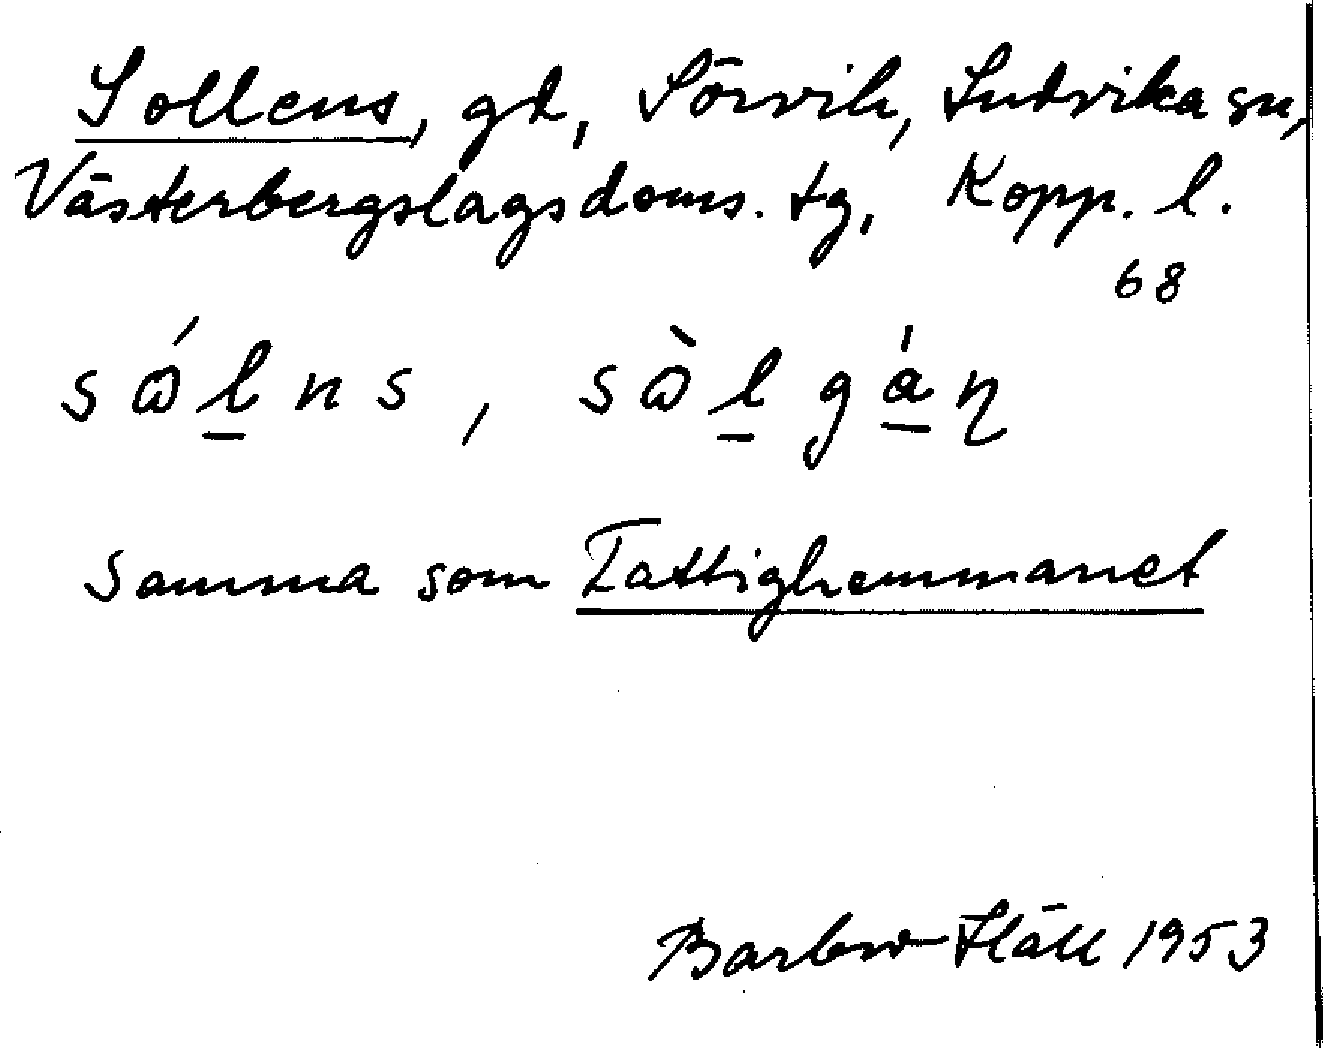 Sollens, gd, Sörvik, Ludvika sn,
Västerbergslags doms. tg, Kopp. l.
68
sɷ́l̠ns, sɷ̀l̠gá̠ɳ
Samma som Fattighemmanet
1953